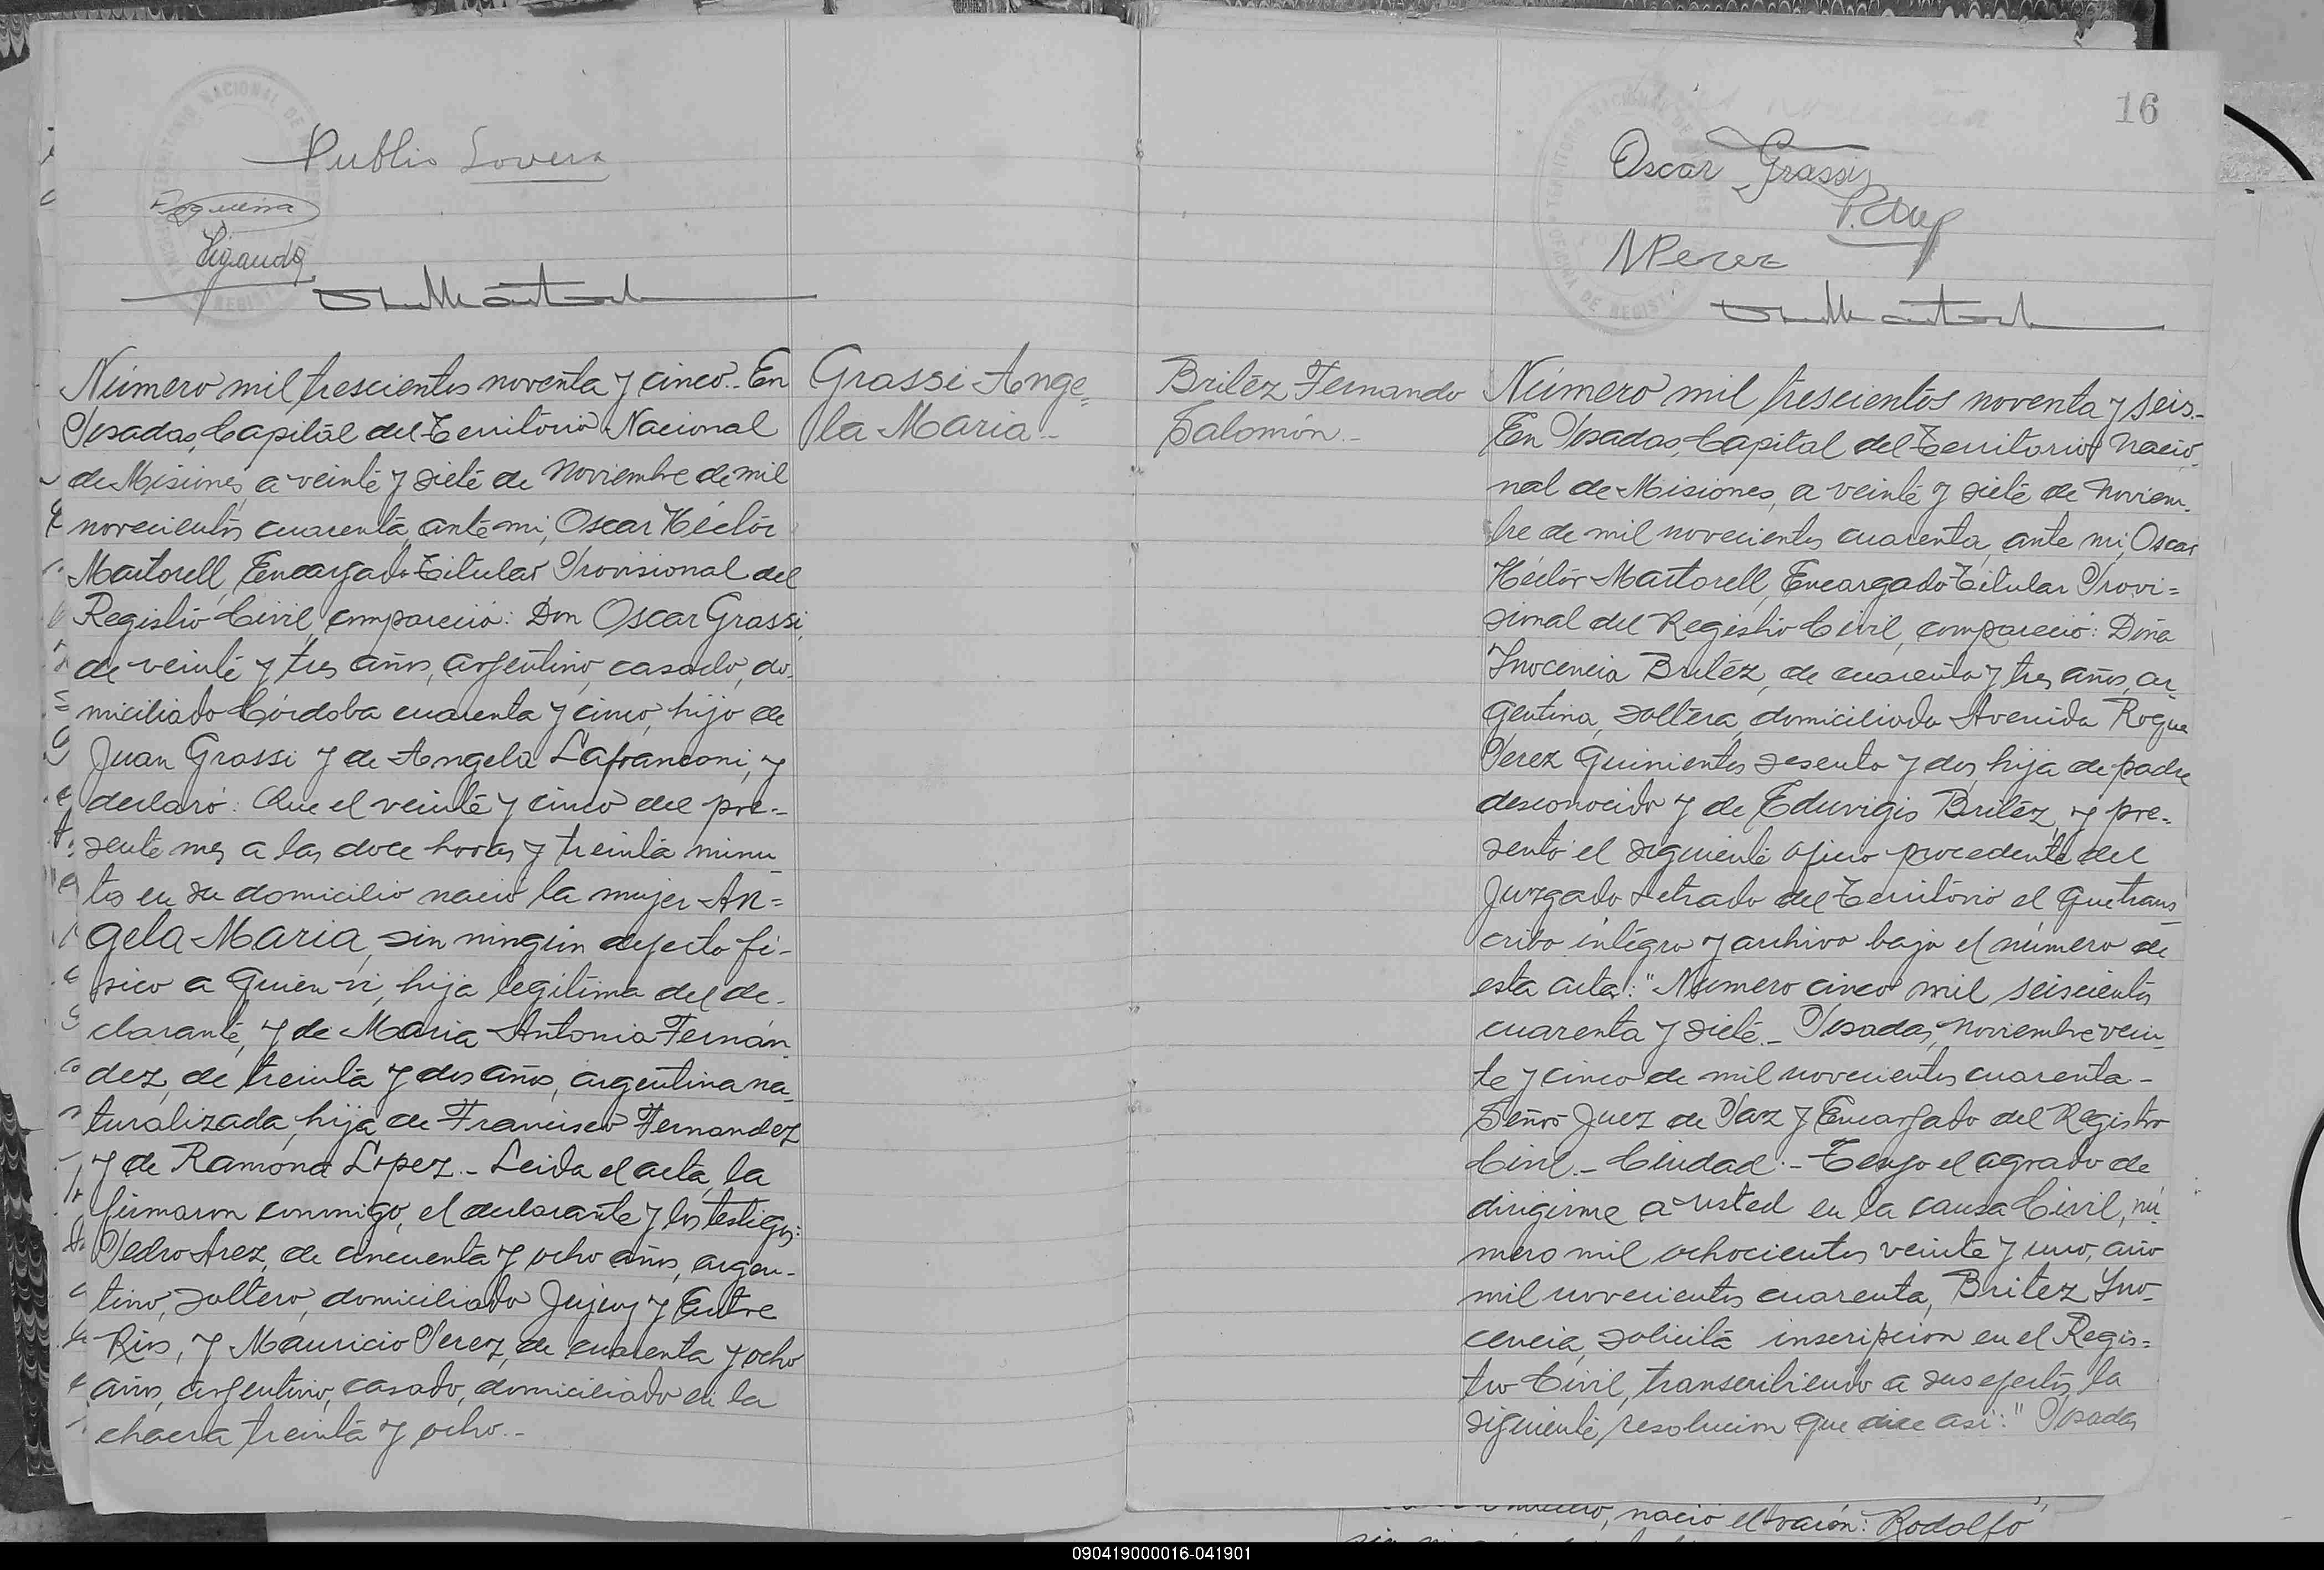 Publio Lovera
Número mil trescientos noventa y cinco.. En
Posadas, Capital del Territorio Nacional
de Misiones, a veinte y siete de Noviembre de mil
novecientos cuarenta, ante mi, Oscar Héctor
Martorell, Encargado Titular Provisional del
Registro Civil, compareció: Don Oscar Grassi,
de veinte y tres años, argentino, casado, do-
miciliado Córdoba cuarenta y cinco, hijo de
Juan Grassi y de Angela Lafranconi, y
declaró: Que el veinte y cinco del pre-
sente mes a las doce horas y treinta minu-
tos en su domicilio nació la mujer An=
gela Maria, sin ningún defecto fi-
sico a quien ví, hija legítima del de-
clarante, y de Maria Antonia Fernán-
dez, de treinta y dos años, argentina na-
turalizada, hija de Francisco Fernandez
y de Ramona López.- Leida el acta, la
firmaron conmigo, el declarante y los testigos:
Pedro Arez, de cincuenta y ocho años, argen-
tino, soltero, domiciliado Jujuy y Entre
Rios, y Mauricio Perez, de cuarenta y ocho
años, argentino, casado, domiciliado en la
chacra treinta y ocho.-
Grassi Ange=
la Maria.-
16
Oscar Grassi
MPerez
Britéz Fernando
Salomón.-
Número mil trescientos noventa y seis.-
En Posadas, Capital del Territorio Nacio-
nal de Misiones, a veinte y siete de Noviem-
bre de mil novecientos cuarenta, ante mi, Oscar
Héctor Martorell, Encargado Titular Provi=
sional del Registro Civil, compareció: Doña
Inocencia Britéz, de cuarenta y tres años, ar-
gentina, soltera, domiciliada Avenida Roque
Perez quinientos sesenta y dos, hija de padre
desconocido y de Eduvigis Britéz, y pre-
sentó el siguiente oficio procedente del
Juzgado Letrado del Territorio el que trans-
cribo integro y archivo bajo el número de
esta acta: "Número cinco mil seiscientos
cuarenta y siete.- Posadas, noviembre vein-
te y cinco de mil novecientos cuarenta -
Señor Juez de Paz y Encargado del Registro
Civil.- Ciudad.- Tengo el agrado de
dirigirme a usted en la causa Civil, nú-
mero mil ochocientos veinte y uno, año
mil novecientos cuarenta, Britez Ino-
cencia, solicita inscripcion en el Regis=
tro Civil, transcribiendo a sus efectos, la
siguiente resolucion que dice asi:" Posadas
nació el varón: Rodolfo
090419000016-041901